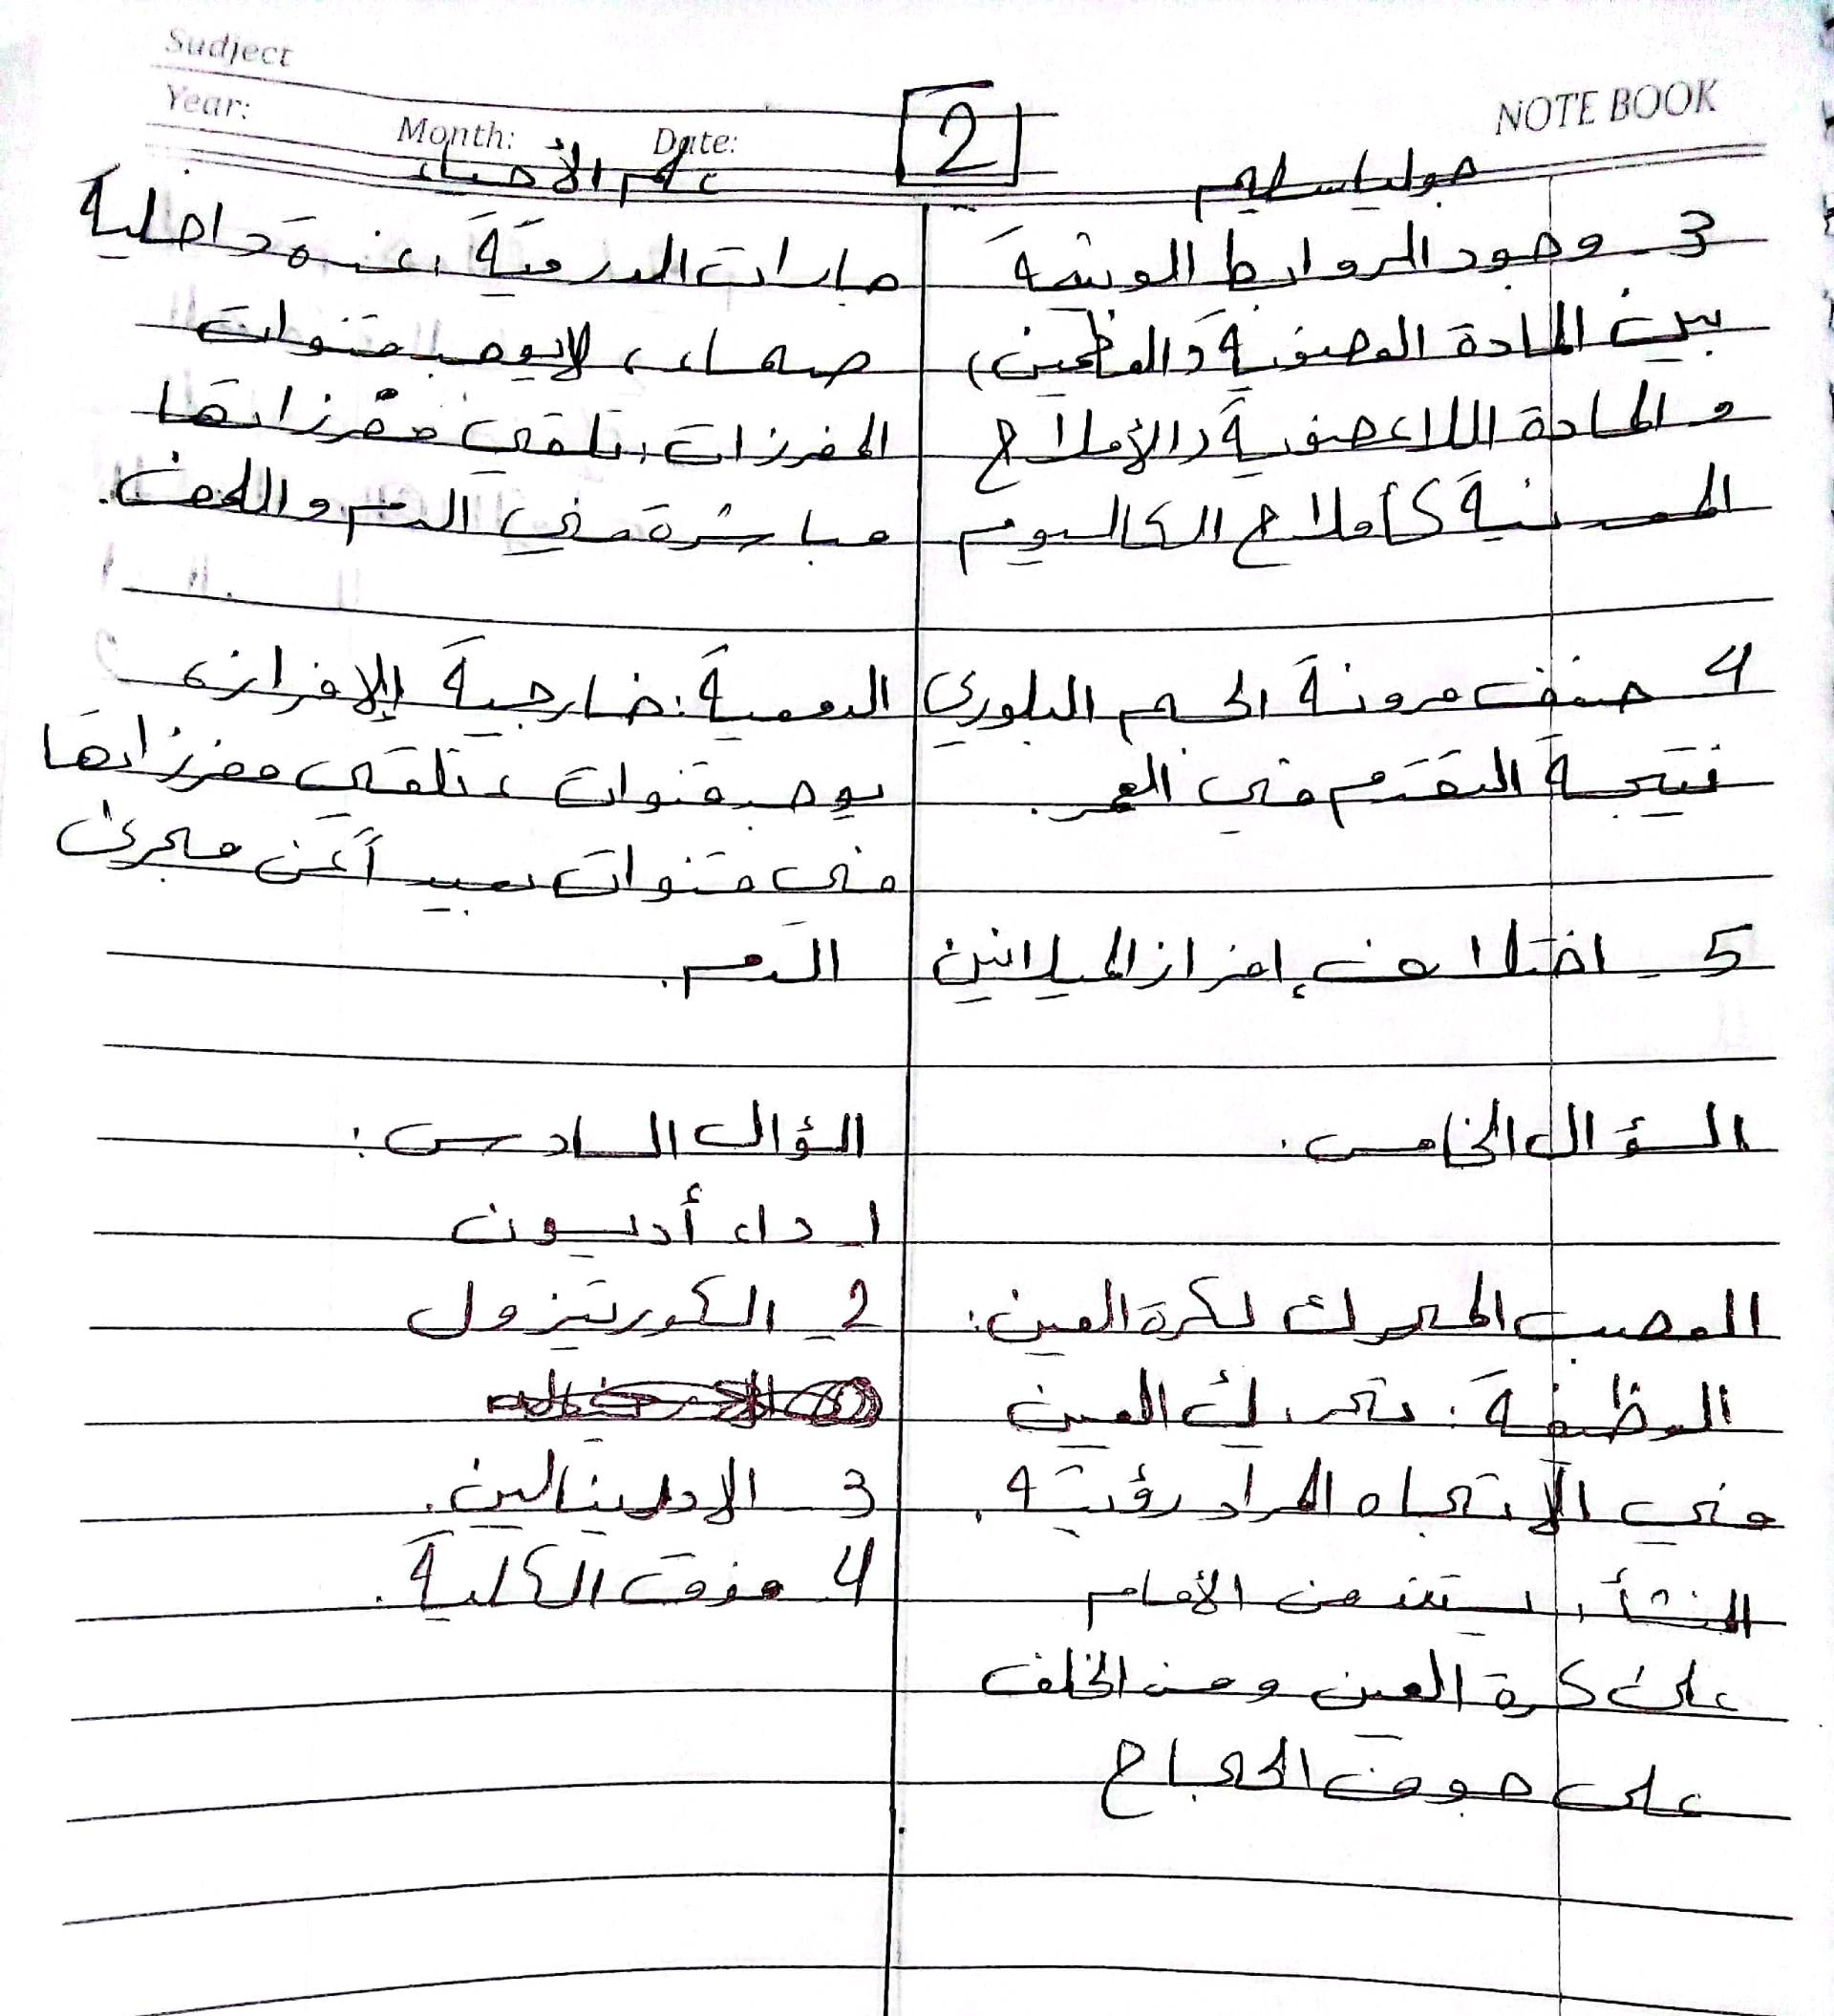 Sudject
Year:
Month:
Date:
2
NOTE BOOK
علم الأحياء
3ـ وجود الروابط الوثيقة
بين المادة العضوية (العظمين)
و المادة اللاعضوية (الأملاح
المعدنية كأملاح الكالسيوم
4ـ ضعف مرونة الجسم البلوري
نتيجة التقدم في العمر.
5ـ اختلاف إفراز الميلانين
السؤال الخامس:
العصب المحرك لكرة العين:
الوظيفة: تحريك العين
في الاتجاه المراد رؤيته.
المنشأ: يستند من الأمام
على كرة العين ومن الخلف
على جوف الحجاج
جارات الدرقية: غدة داخلية
صماء، لايوجد قنوات
المفرزات، تلقي مفرزاتها
مباشرة في الدم واللمف.
الدمعية: خارجية الإفراز،
يوجد قنوات، تلقي مفرزاتها
في قنوات بعيداً عن مجرى
الدم.
السؤال السادس:
1ـ داء أديسون
2ـ الكورتيزول
3ـ الادرينالين.
4ـ فوق الكلية.